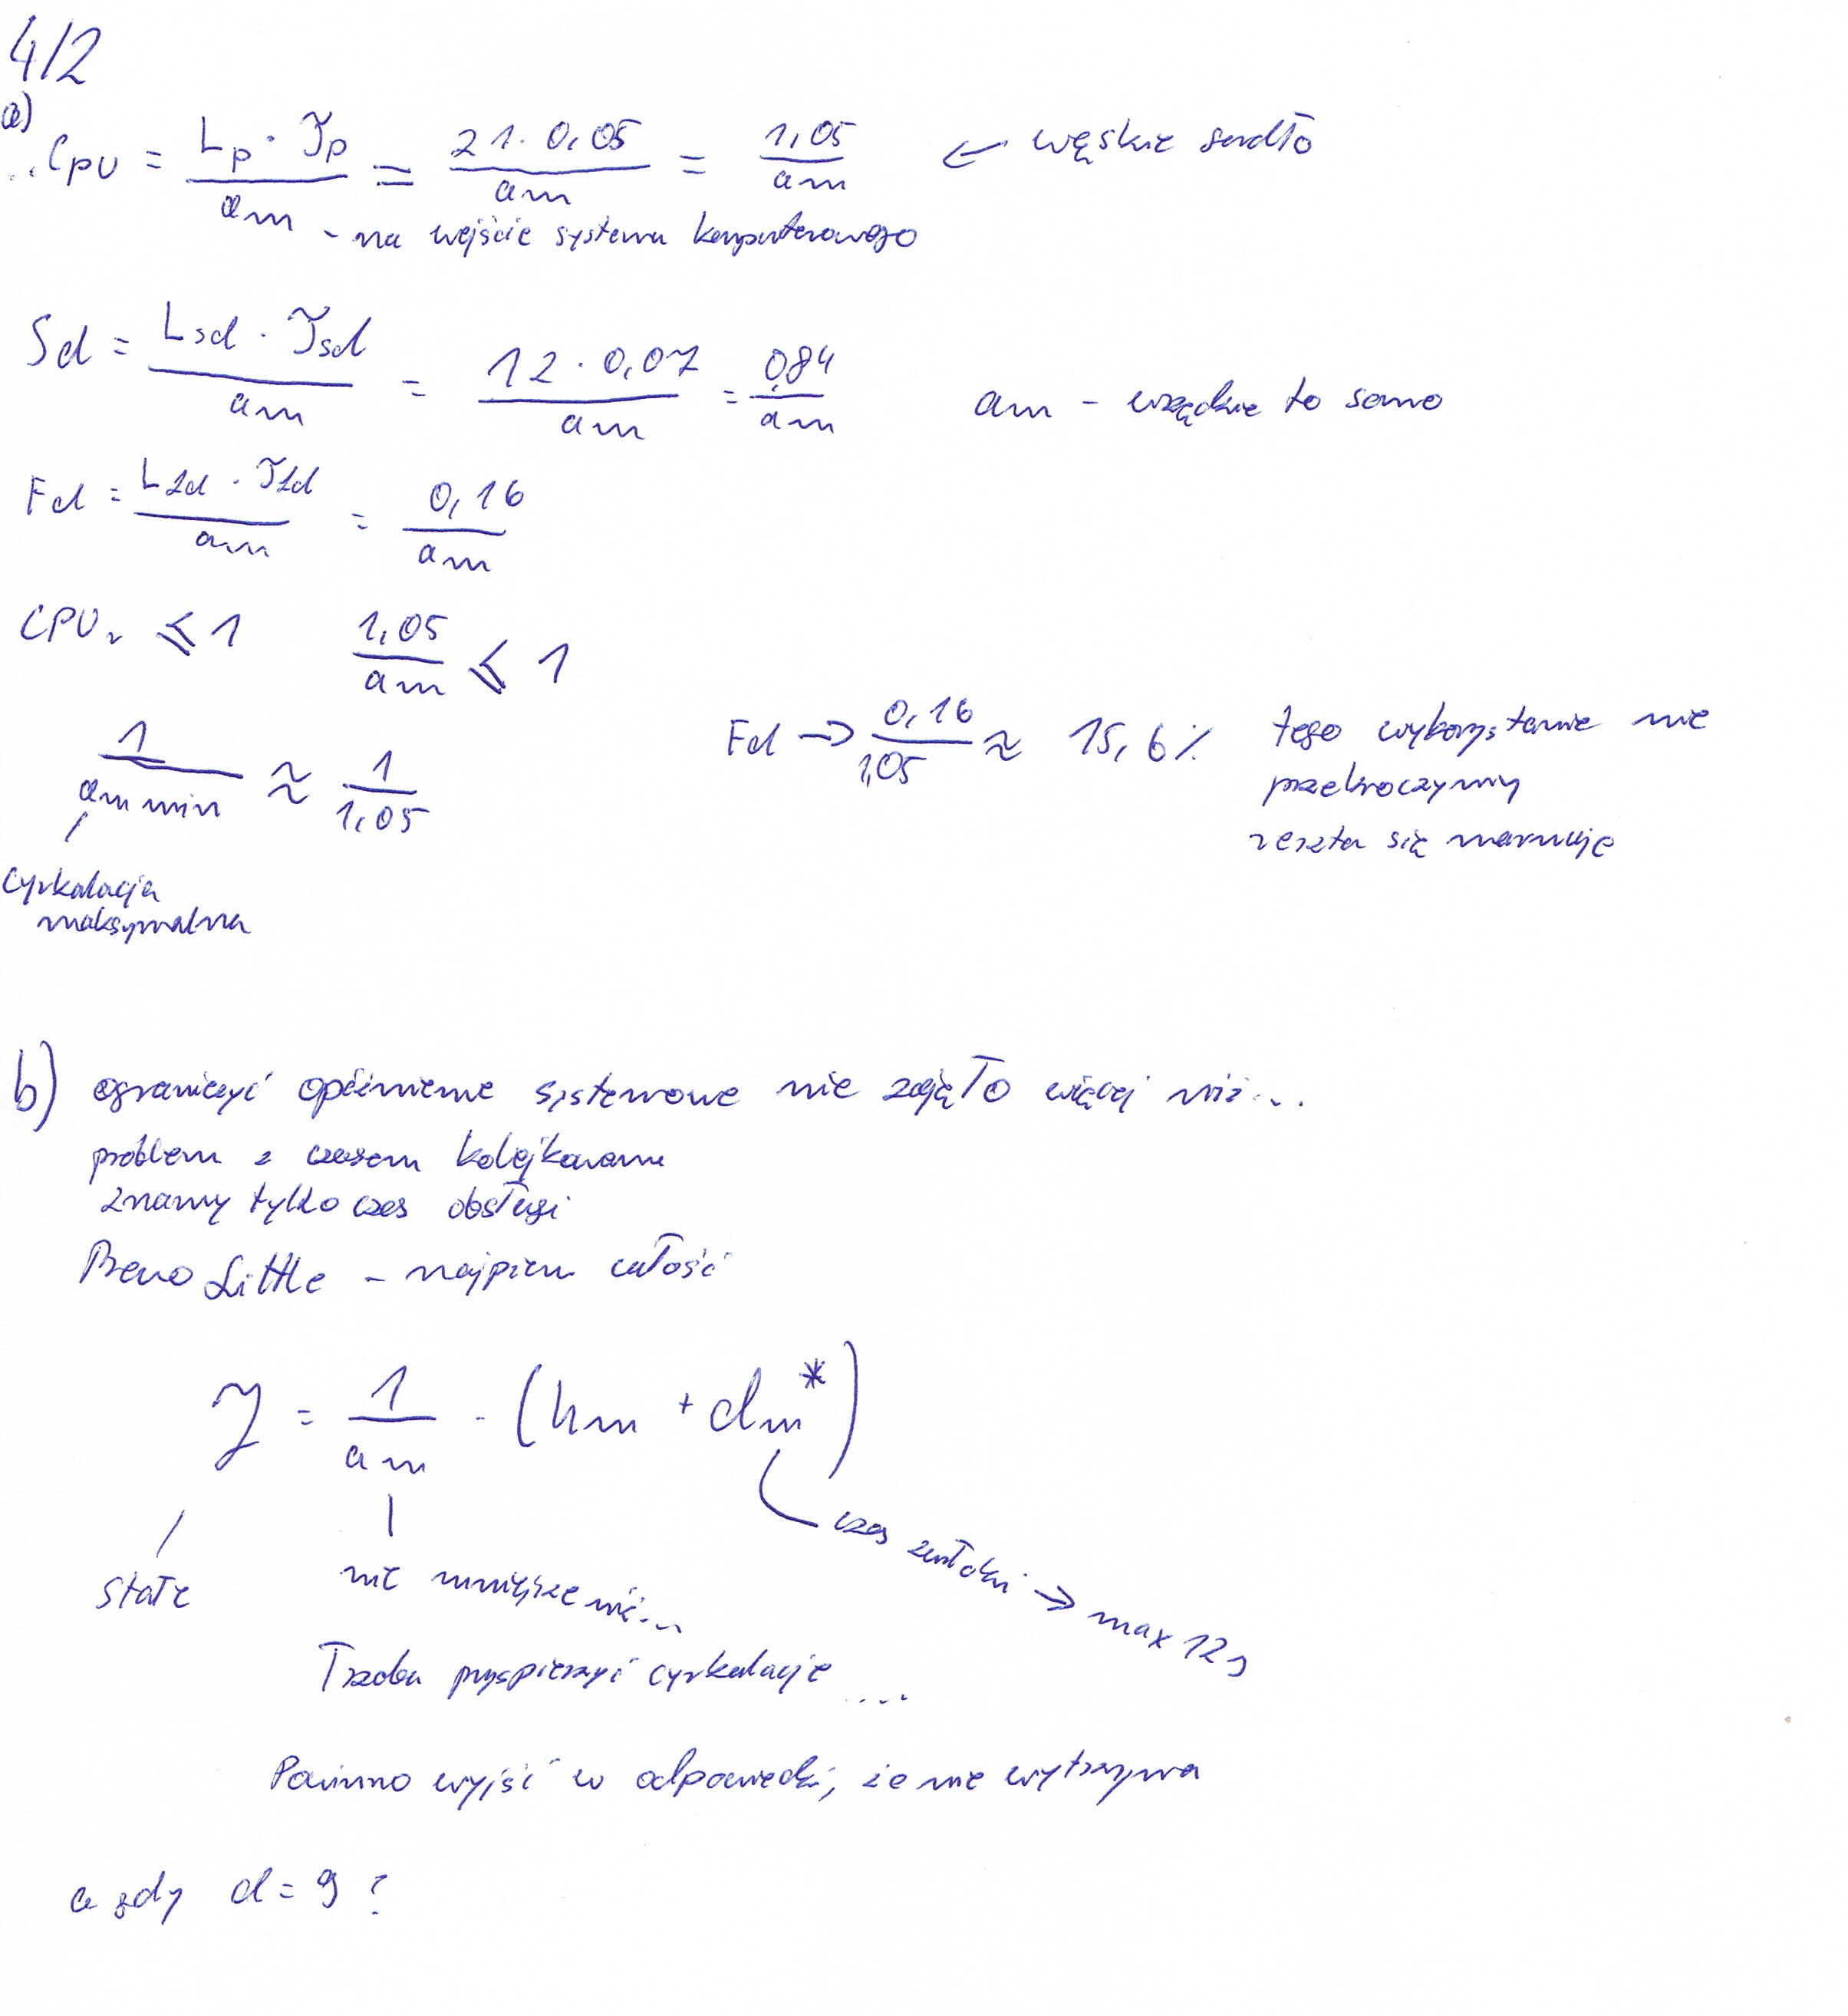 4/2
a)
CPU = Lp · Tp / am = 21 · 0,05 / am = 1,05 / am ← wąskie gardło
- na wejście systemu komputerowego
Sd = Lsd · Tsd / am = 12 · 0,07 / am = 0,84 / am
am - wszędzie to samo
Fd = Lfd · Tfd / am = 0,16 / am
CPU ≤ 1 1,05 / am ≤ 1
1 / am min ≈ 1 / 1,05
Fd → 0,16 / 1,05 ≈ 15,6 % tego wykorzystanie nie
przekroczymy
reszta się marnuje
cyrkulacja
maksymalna
b) ograniczyć opóźnienie systemowe nie zajęło więcej niż...
problem z czasem kolejkowania
znamy tylko czas obsługi
Prawo Little - najpierw całość
J = 1 / am · (hm + dm*)
czas zwłoki → max 12 s
stałe
nie mniejsze niż...
Trzeba przyspieszyć cyrkulację ....
Powinno wyjść w odpowiedzi, że nie wytrzyma
a gdy d = 9 ?